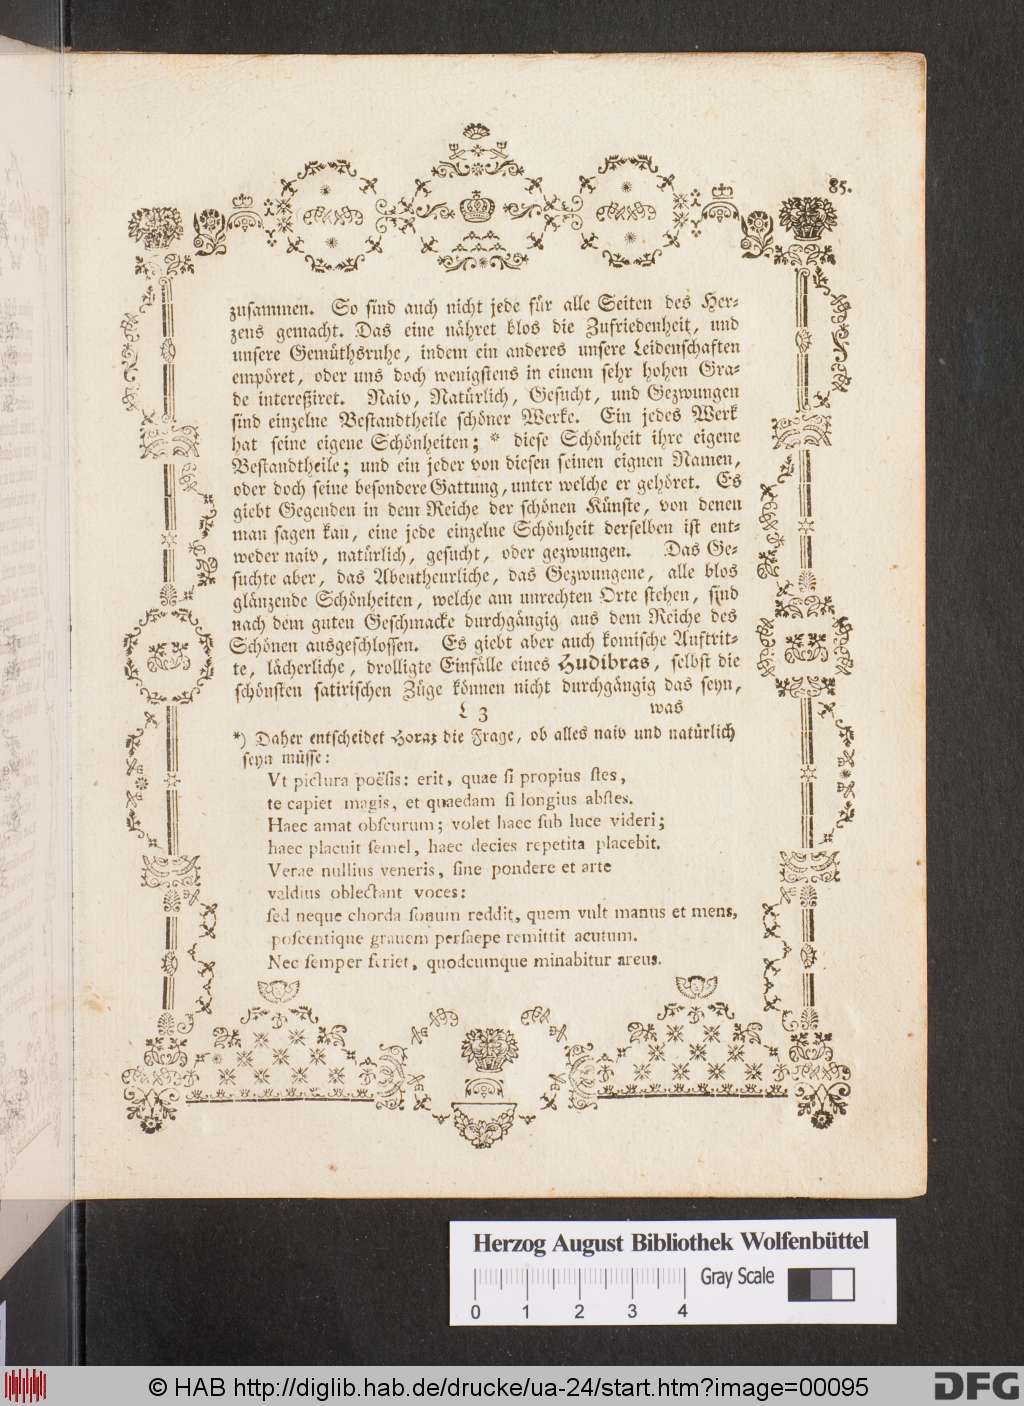 85.
zusammen. So sind auch nicht jede für alle Seiten des Her-
zens gemacht. Das eine nähret blos die Zufriedenheit, und
unsere Gemüthsruhe, indem ein anderes unsere Leidenschaften
empöret, oder uns doch wenigstens in einem sehr hohen Gra-
de intereßiret. Naiv, Natürlich, Gesucht, und Gezwungen
sind einzelne Bestandtheile schöner Werke. Ein jedes Werk
hat seine eigene Schönheiten; * diese Schönheit ihre eigene
Bestandtheile; und ein jeder von diesen seinen eignen Namen,
oder doch seine besondere Gattung, unter welche er gehöret. Es
giebt Gegenden in dem Reiche der schönen Künste, von denen
man sagen kan, eine jede einzelne Schönheit derselben ist ent-
weder naiv, natürlich, gesucht, oder gezwungen. Das Ge-
suchte aber, das Abentheurliche, das Gezwungene, alle blos
glänzende Schönheiten, welche am unrechten Orte stehen, sind
nach dem guten Geschmacke durchgängig aus dem Reiche des
Schönen ausgeschlossen. Es giebt aber auch komische Auftrit-
te, lächerliche, drolligte Einfälle eines Hudibras, selbst die
schönsten satirischen Züge können nicht durchgängig das seyn,
L 3 was
*) Daher entscheidet Horaz die Frage, ob alles naiv und natürlich
seyn müsse:
Vt pictura poësis: erit, quae si propius stes,
te capiet magis, et quaedam si longius abstes.
Haec amat obscurum; volet haec sub luce videri;
haec placuit semel, haec decies repetita placebit.
Verae nullius veneris, sine pondere et arte
valdius oblectant voces:
sed neque chorda sonum reddit, quem vult manus et mens,
poscentique grauem persaepe remittit acutum.
Nec semper feriet, quodcumque minabitur arcus.
Herzog August Bibliothek Wolfenbüttel
Gray Scale
0 1 2 3 4
© HAB http://diglib.hab.de/drucke/ua-24/start.htm?image=00095
DFG